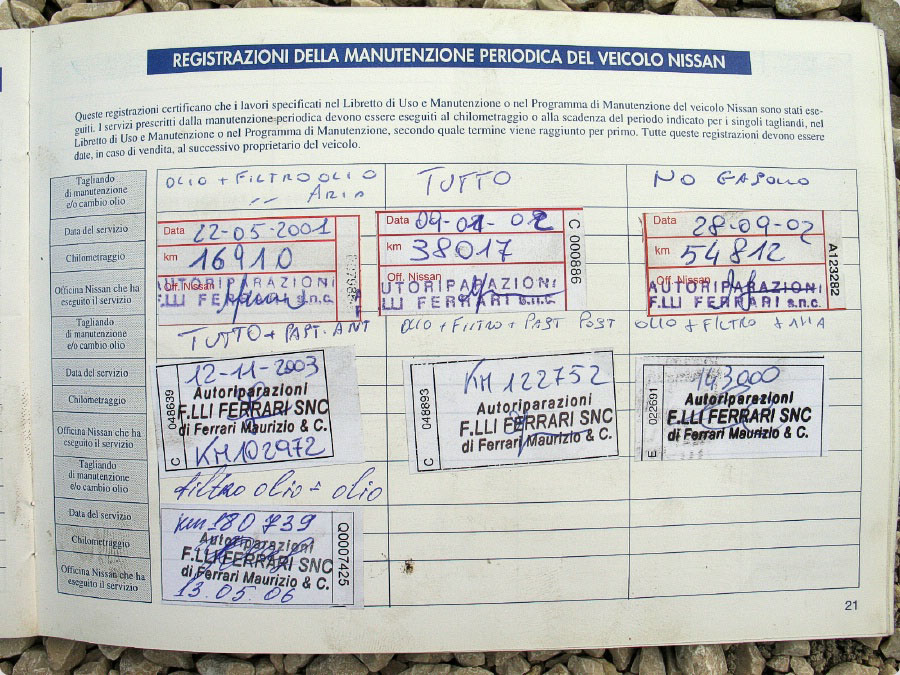 REGISTRAZIONI DELLA MANUTENZIONE PERIODICA DEL VEICOLO NISSAN
Queste registrazioni certificano che i lavori specificati nel Libretto di Uso e Manutenzione o nel Programma di Manutenzione del veicolo Nissan sono stati ese-
guiti. I servizi prescritti dalla manutenzione periodica devono essere eseguiti al chilometraggio o alla scadenza del periodo indicato per i singoli tagliandi, nel
Libretto di Uso e Manutenzione o nel Programma di Manutenzione, secondo quale termine viene raggiunto per primo. Tutte queste registrazioni devono essere
date, in caso di vendita, al successivo proprietario del veicolo.
Tagliando
di manutenzione
e/o cambio olio
OLIO + FILTRO OLIO
ARIA
TUTTO
NO GASOLIO
Data del servizio
Data 22-05-2001
Data 09-01-02
Data 28-09-02
Chilometraggio
km 16910
km 38017
km 54812
C 000886
A123282
Officina Nissan che ha
eseguito il servizio
Off. Nissan
AUTORIPARAZIONI
F.LLI FERRARI s.n.c.
Off. Nissan
UTORIPARAZIONI
LLI FERRARI s.n.c.
Off. Nissan
AUTORIPARAZIONI
F.LLI FERRARI s.n.c.
Tagliando
di manutenzione
e/o cambio olio
TUTTO + PAST. ANT
OLIO + FILTRO + PAST POST
OLIO + FILTRO + ARIA
Data del servizio
Chilometraggio
Officina Nissan che ha
eseguito il servizio
C 048639
12-11-2003
Autoriparazioni
F.LLI FERRARI SNC
di Ferrari Maurizio & C.
KM 102972
C 048893
KM 122752
Autoriparazioni
F.LLI FERRARI SNC
di Ferrari Maurizio & C.
E 022691
143000
Autoriparazioni
F.LLI FERRARI SNC
di Ferrari Maurizio & C.
Tagliando
di manutenzione
e/o cambio olio
filtro olio + olio
Data del servizio
Chilometraggio
Officina Nissan che ha
eseguito il servizio
km 180739
Autoriparazioni
F.LLI FERRARI SNC
di Ferrari Maurizio & C.
13.05.06
Q0007425
21